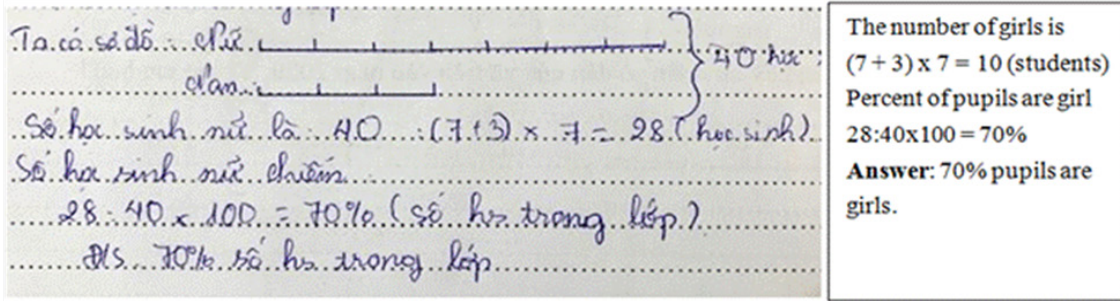 Ta có sơ đồ: Nữ
40 học
Nam
Số học sinh nữ là: 40 : (7+3) x 7 = 28 (học sinh)
Số học sinh nữ chiếm
28 : 40 x 100 = 70% (số hs trong lớp)
ĐS 70% số hs trong lớp
The number of girls is
(7 + 3) x 7 = 10 (students)
Percent of pupils are girl
28:40x100 = 70%
Answer: 70% pupils are
girls.